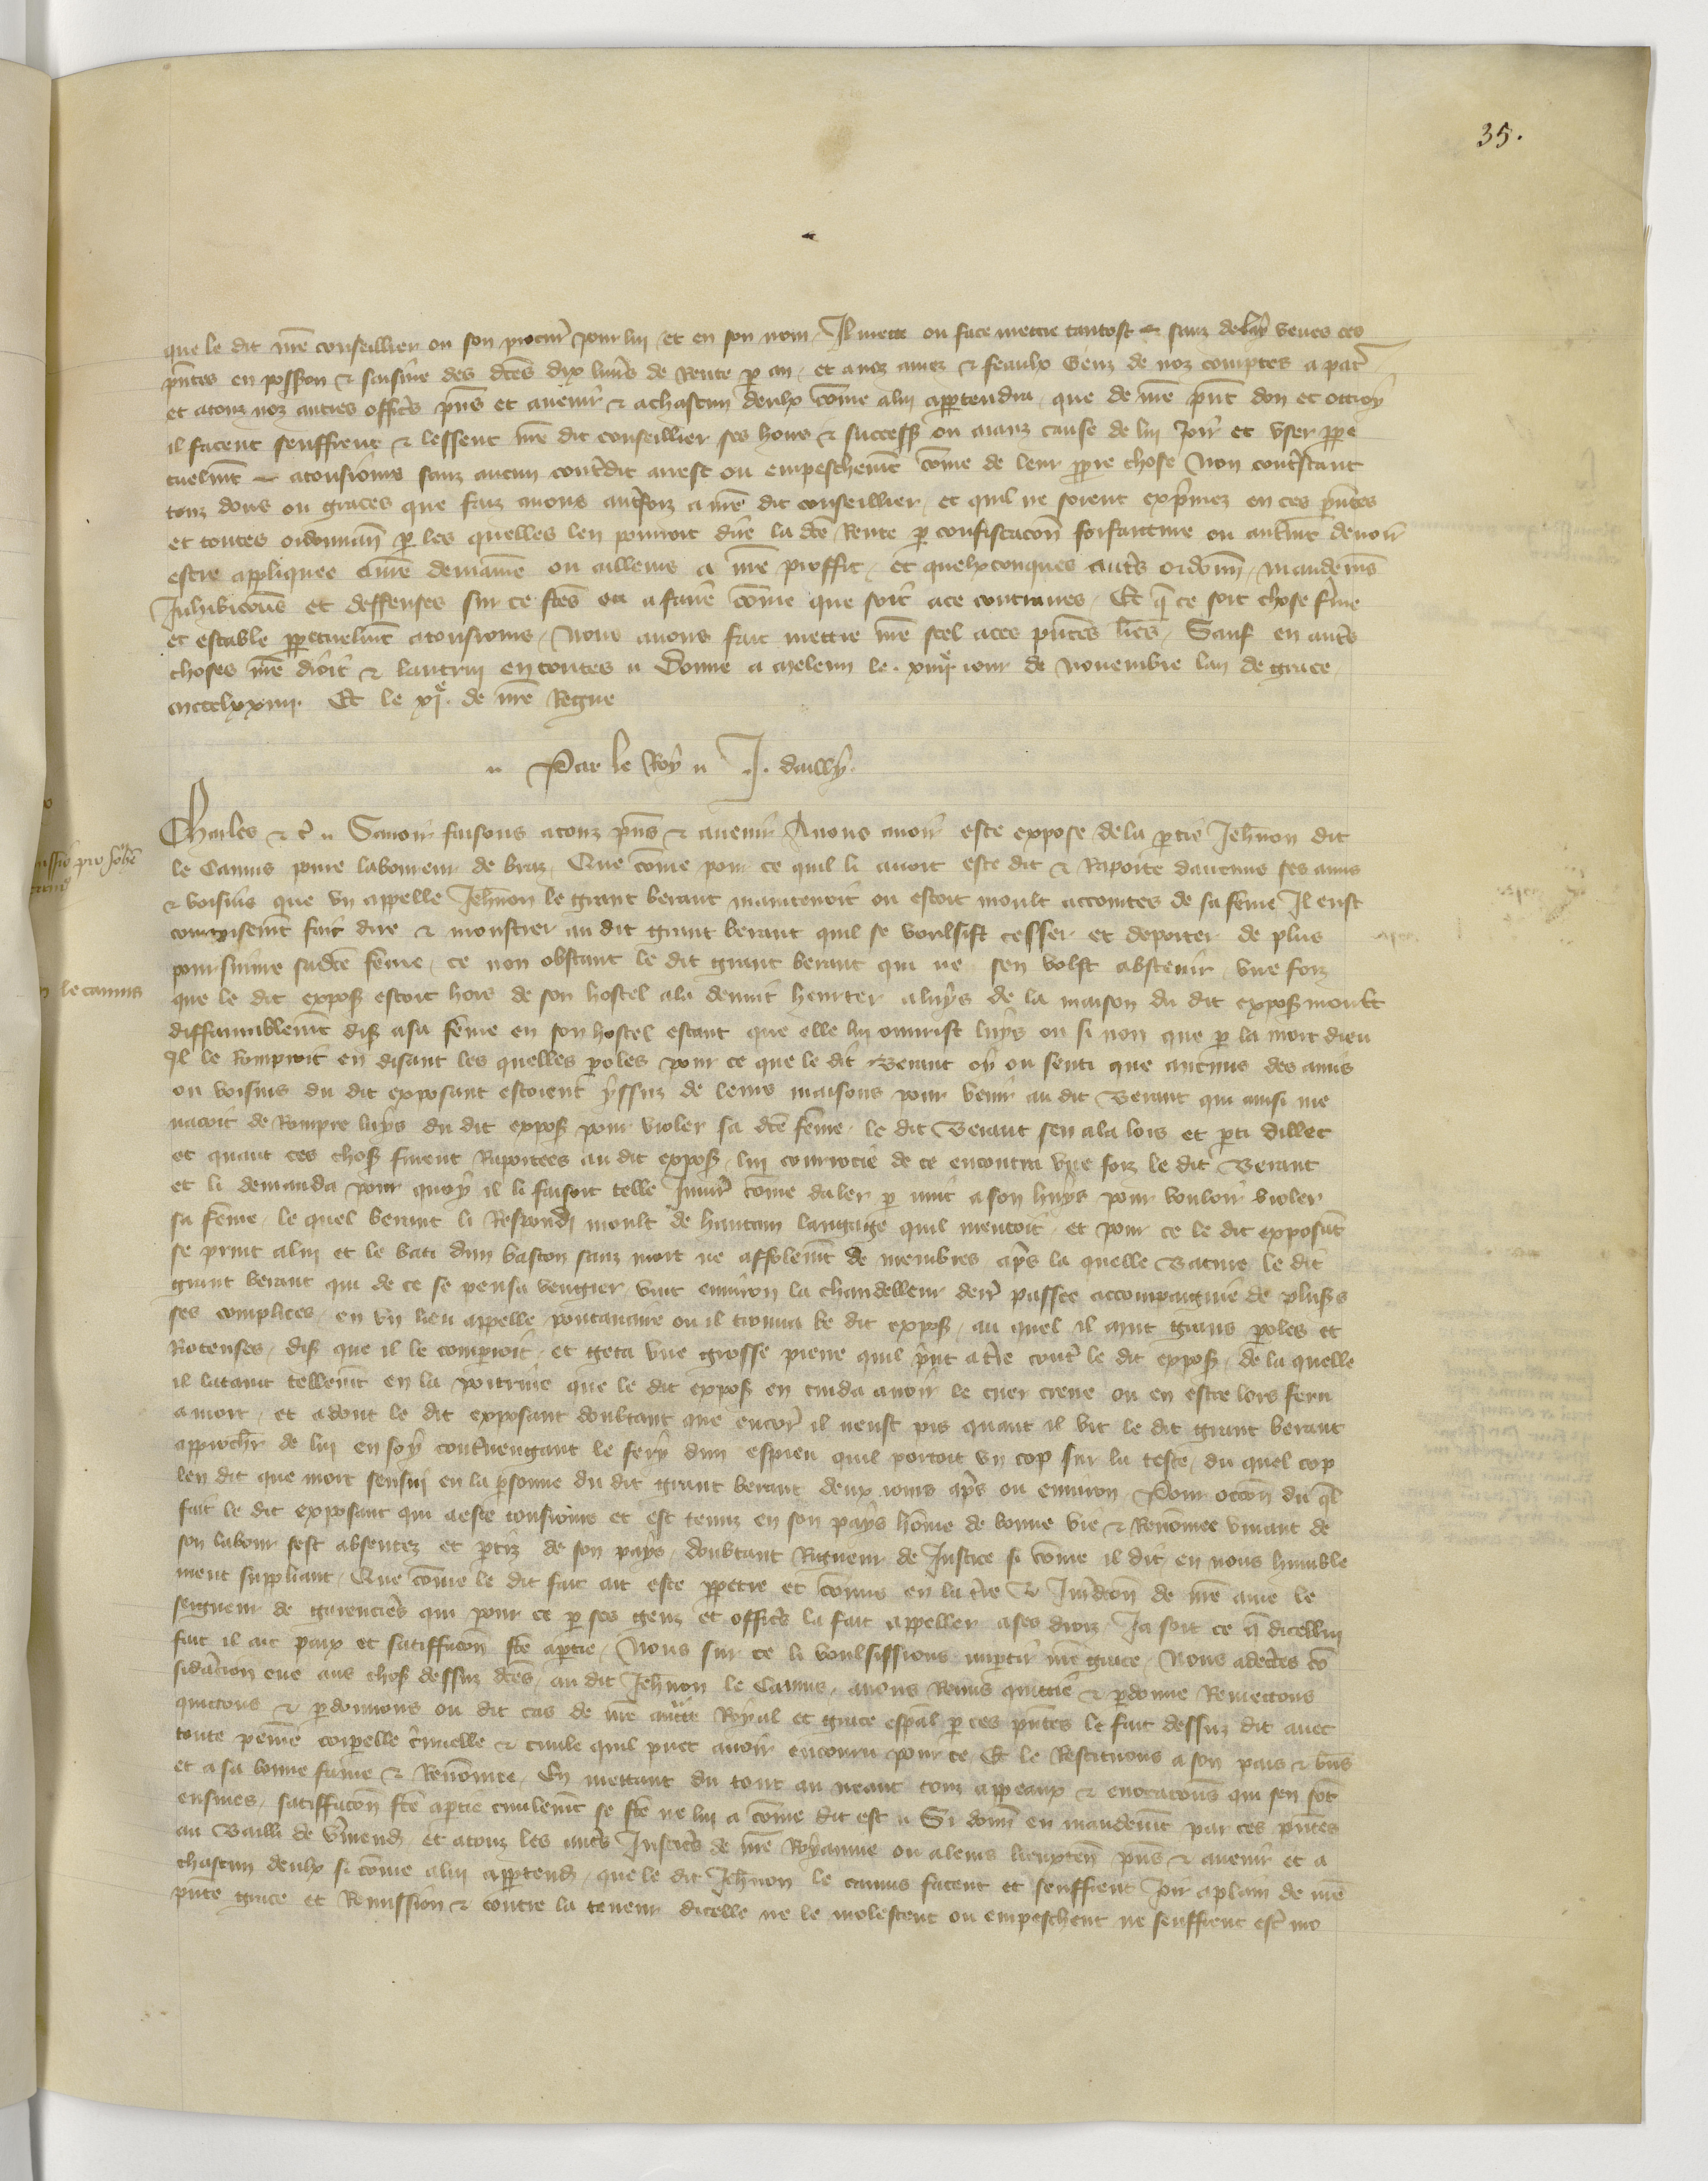 35.
que le dit nr̄e conseillier ou son procur̄ pour lui et en son nom. Il mette ou face mettre tantost & sanz delay veues ces
p̄ntes en poss̄on & saisine des dc̄es dix livr̄es de Rente p̲ an. et a noz amez & feaulx Genz de noz comptes a par̄
et a touz noz autres offic̄s p̄ns et avenir & a chascun deulx cōme a lui app̲tendra, que de nr̄e p̄nt don et ottroy
il facent seuffrent & lessent nr̄e dit conseillier ses hoirs & success̄ ou aianz cause de lui Joir et user p̲pe
tuelmt̄ & a tousiours sanz aucun contr̄dit arrest ou empeschemt̄ cōme de leur p̲pre chose Non contr̄stant
touz dons ou graces que faiz avons autr̄foiz a nr̄e dit conseillier, et quil ne soient exp̄mez en ces p̄ntes
et toutes ordonnan̄ p̲ les quelles len pourroit dire la dc̄e Rente p̲ confiscacōn forfaiture ou autrēmt devoir
estre appliquee a nr̄e demaine ou ailleurs a nr̄e proffit, et quelxconques autr̄s ordonn̄, mandemēns
Inhibicōns et deffenses sur ce fc̄es ou a faire cōme que soit a ce contraires, Et q̄ ce soit chose ferme
et estable p̲petuelmt̄ a tousiours, Nous avons fait mettre nr̄e scel a ces p̄ntes lr̄es, Sauf en autr̄s
choses nr̄e droit & lautrui en toutes. Donne a meleun le . xiiiie jour de Novembre lan de grace
mccclxxiiii. Et le xie. de nr̄e Regne
Par le Roy J. dailly.
Charles & c̄ Savoir faisons a touz p̄ns & avenir A nous avoir este expose de la p̲tie Jeh̄non dit
le Camus povre laboureur de braz, Que cōme pour ce quil li avoit este dit & Raporte daucuns ses amis
& voisins que un appelle Jeh̄non le grant berant maintenoit ou estoit moult accointes de sa feme Il eust
courtoisemt̄ fait dire & monstrer au dit grant berant quil se voulsist cesser et deporter de plus
poursuivre sadc̄e feme, ce non obstant le dit grant berant qui ne sen volst abstenir, une foiz
que le dit expos̄ estoit hors de son hostel ala de nuit heurter a luys de la maison du dit expos̄ moult
diffamablemt̄ dis̄ a sa feme en son hostel estant que elle lui ouvrist luys ou si non que p̲ la mort dieu
Il le Romproit en disant les quelles p̲oles pour ce que le dit Berant oy ou senti que aucuns des amis
ou voisins du dit exposant estoient yssuz de leurs maisons pour venir au dit Berant qui ainsi me
nacoit de Rompre luys du dit expos̄ pour violer sa dc̄e feme, le dit Berant sen ala lors et p̲ti dillec
et quant ces chos̄ furent Raportees au dit expos̄, lui courrocie de ce encontra une foiz le dit Berant
et li demanda pour quoy il li faisoit telle Iniur̄ cōme daler p̲ nuit a son huys pour vouloir violer
sa feme, le quel berant li Respondi moult de hautain langage quil mentoit, et pour ce le dit exposant
se print a lui et le bati dun baston sanz mort ne affolemt̄ de membres, ap̄s la quelle bature le dit
grant berant qui de ce se pensa vengier, vint environ la chandelleur derr̄ passee accompaignie de plus̄s
ses complices, en un lieu appelle pontavaire ou il trouva le dit expos̄, au quel il ayut grans p̲oles et
Roteuses, dis̄ que il le comperroit, et geta une grosse pierre quil p̄nt a tr̄e contr̄ le dit expos̄, de la quelle
il lataint tellemt̄ en la poitrine que le dit expos̄ en cuida avoir le cuer creve ou en estre lors feru
a mort, et adont le dit exposant doubtant que encor̄ il neust pis quant il vit le dit grant berant
approch̄r de lui en soy contr̄vengant le fery dun espieu quil portoit un cop sur la teste, du quel cop
len dit que mort sensui en la p̲sonne du dit grant berant deux jours ap̄s ou environ Pour occōn du q̄l
fait le dit exposant qui a este tousiours et est tenuz en son pays hōme de bonne vie & Renōmee vivant de
son labour sest absentez et p̲tiz de son pays, doubtant Rigueur de Justice si cōme il dit, en nous humble
ment suppliant, Que cōme le dit fait ait este p̲petre et cōmis en la tr̄e & Jurid̄con de nr̄e ame le
seigneur de garencier̄s qui pour ce p̲ ses genz et offic̄s la fait appeller a ses droiz, Ja soit ce q̄ dicellui
fait il ait paix et satiffacōn fc̄e a p̲tie, Nous sur ce li voulsissions imp̲tir nr̄e grace, Nous adecr̄tes cō
sidācion eue aus chos̄ dessuz dc̄es, au dit Jeh̄non le Camus, avons Remis quittie & p̲donne Remettons
quittons & p̲donnons ou dit cas de nr̄e auct̄e Royal et grace esp̄al p̲ ces p̄ntes le fait dessuz dit avec
toute peine corporelle c̄minelle & civile quil puet avoir encouru pour ce Et le Restituons a son pais & biēns
et a sa bonne fame & Renōmee, En mettant du tout au neant touz appeaux & evocacōns qui sen sōt
ensuies, satiffacōn fc̄e a p̲tie civilemt̄ se fc̄e ne lui a cōme dit est Si donn̄ en mandemt̄ par ces p̄ntes
au Bailli de v̄mend̄. et a touz les autr̄s Justic̄s de nr̄e Royaume ou a leurs lieuxten̄ p̄ns & avenir et a
chascun deulx si cōme a lui app̲tend̄, que le dit Jeh̄non le camus facent et seuffrent Joir a plain de nr̄e
p̄nte grace et Remission & contre la teneur dicelle ne le molestent ou empeschent ne seuffrent estr̄ mo
le camus